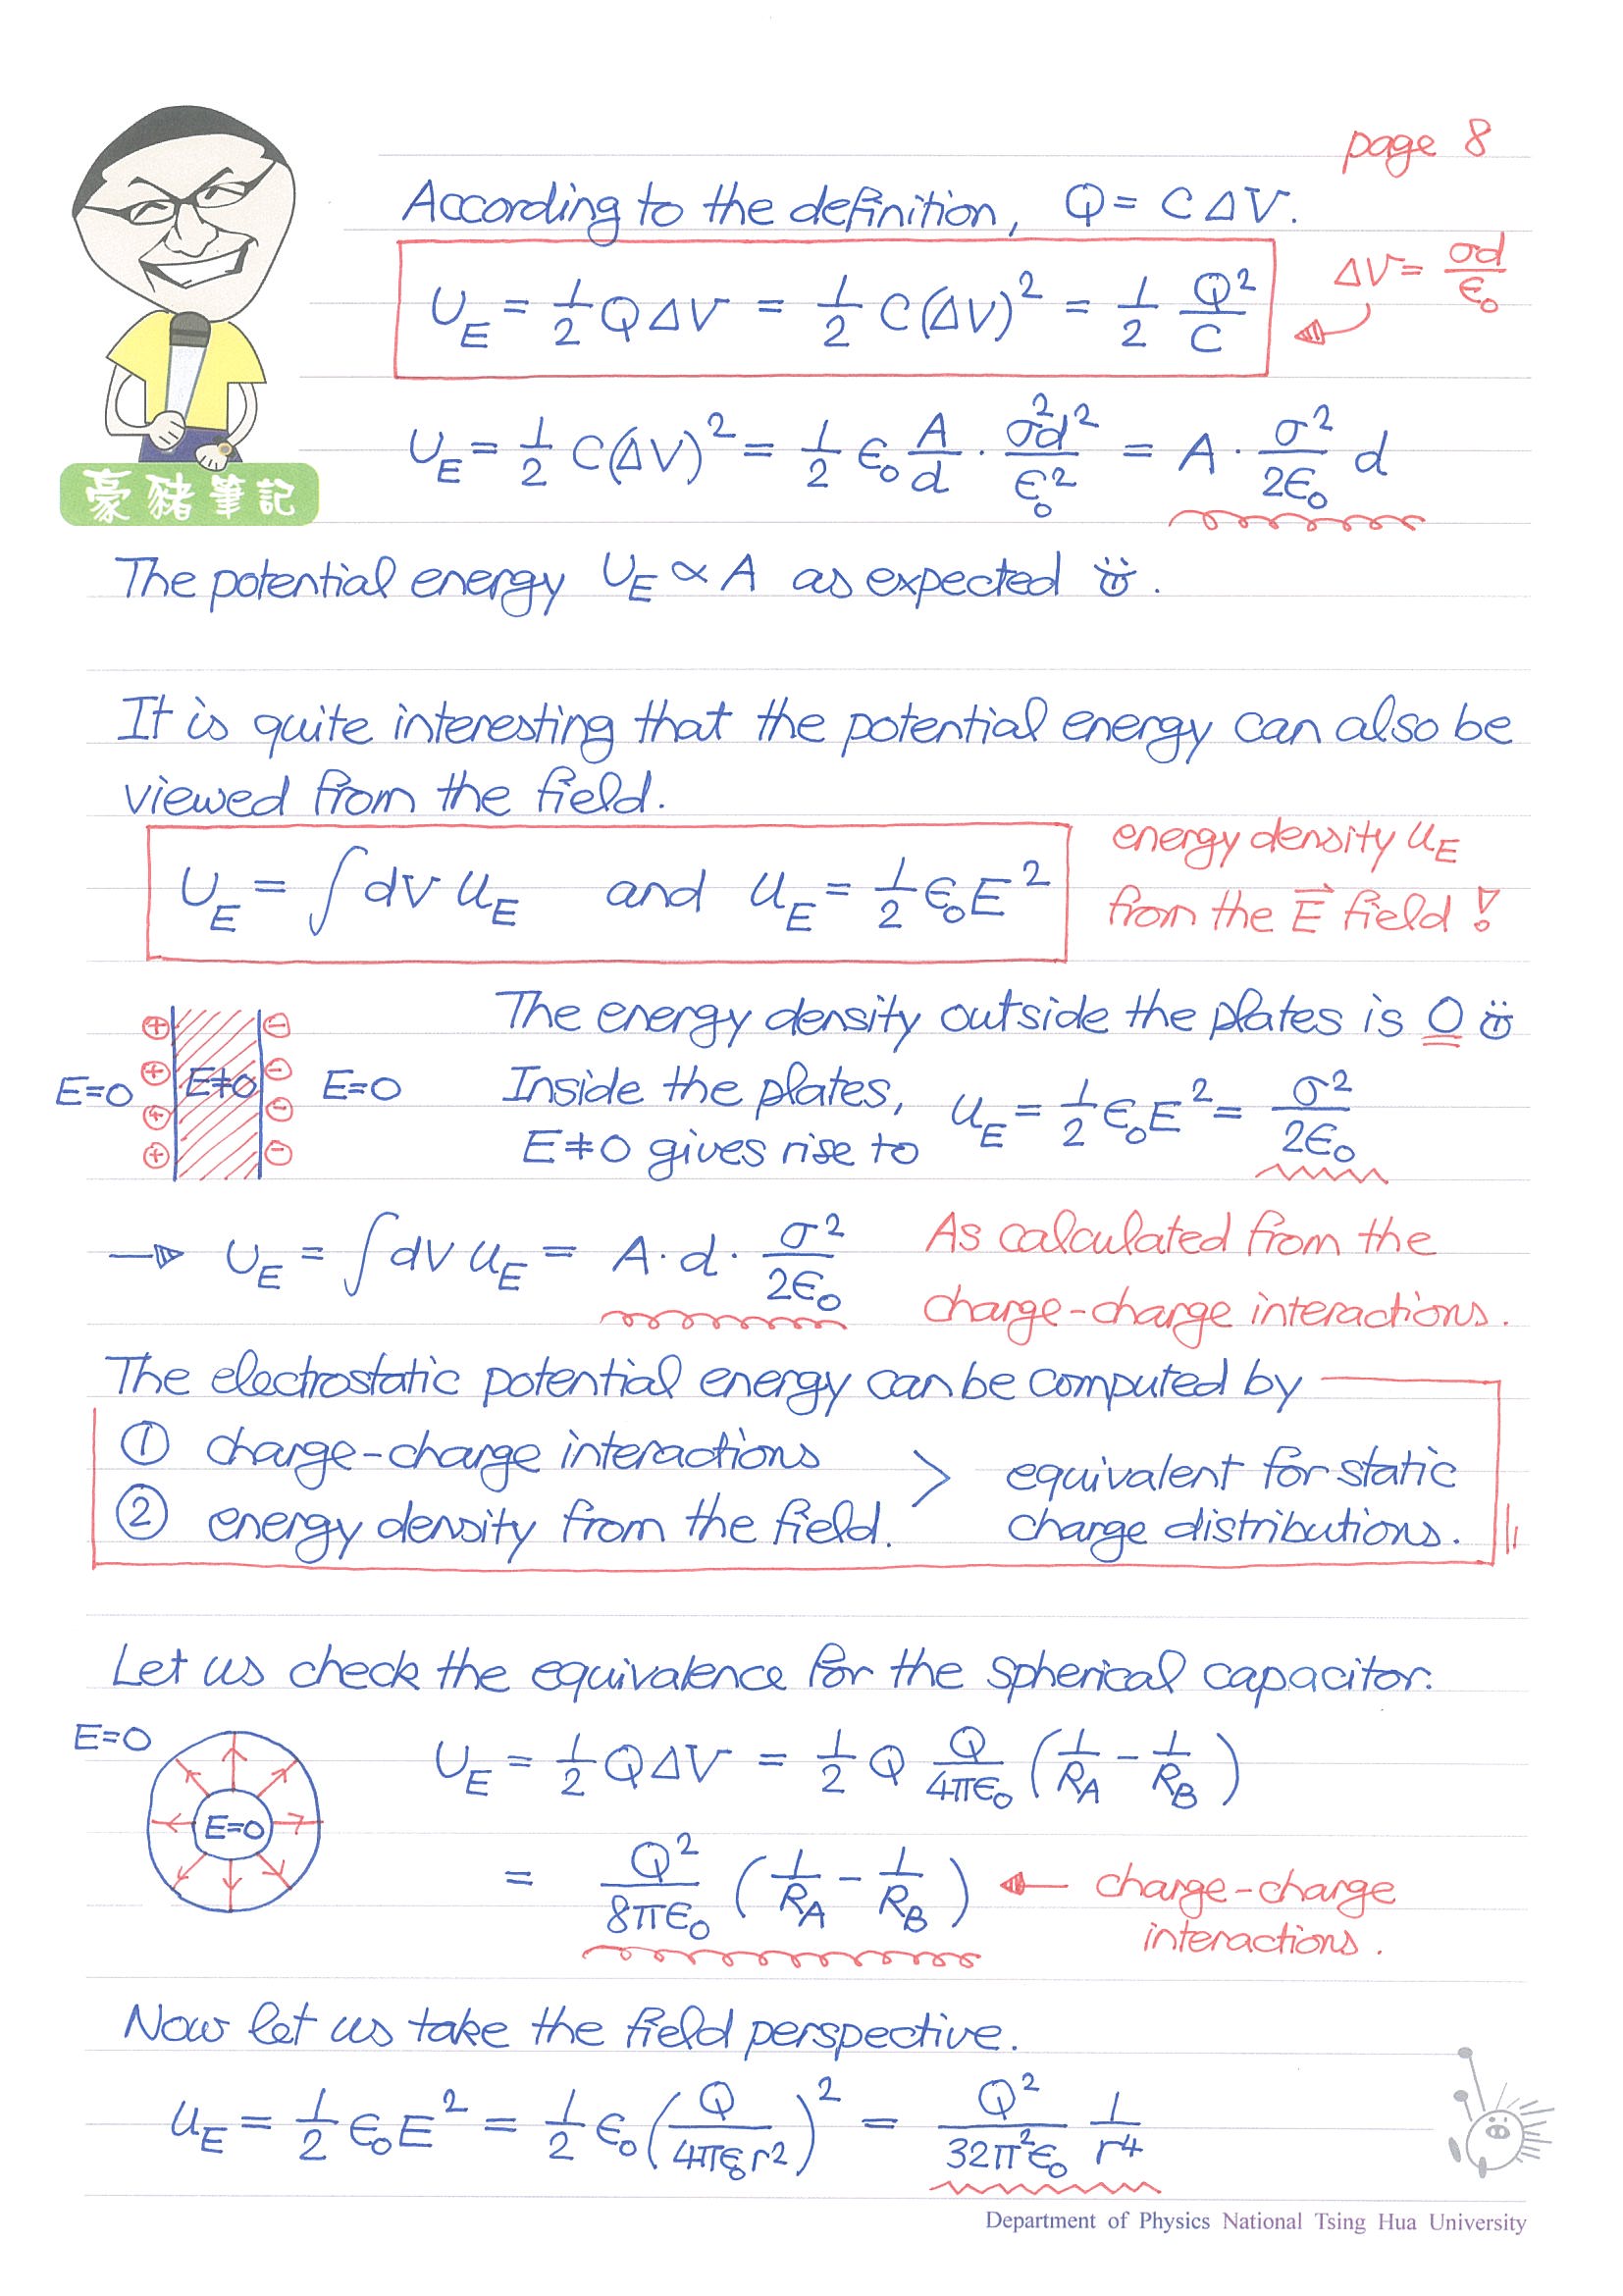 page 8
According to the definition, Q = CΔV.
U_E = 1/2 QΔV = 1/2 C(ΔV)² = 1/2 Q²/C
ΔV = σd/ϵ₀
U_E = 1/2 C(ΔV)² = 1/2 ϵ₀ A/d · σ²d²/ϵ₀² = A · σ²/2ϵ₀ d
豪豬筆記
The potential energy U_E ∝ A as expected ☺.
It is quite interesting that the potential energy can also be
viewed from the field.
U_E = ∫dV u_E and u_E = 1/2 ϵ₀E²
energy density u_E
from the E⃗ field!
The energy density outside the plates is 0 ☺
E=0 E≠0 E=0
+ + + +
- - - -
Inside the plates,
E≠0 gives rise to
u_E = 1/2 ϵ₀E² = σ²/2ϵ₀
→ U_E = ∫dV u_E = A·d· σ²/2ϵ₀
As calculated from the
charge-charge interactions.
The electrostatic potential energy can be computed by
① charge-charge interactions
② energy density from the field.
> equivalent for static
charge distributions.
Let us check the equivalence for the spherical capacitor.
E=0
E=0
U_E = 1/2 QΔV = 1/2 Q Q/4πϵ₀ (1/R_A - 1/R_B)
= Q²/8πϵ₀ (1/R_A - 1/R_B) ← charge-charge
interactions.
Now let us take the field perspective.
u_E = 1/2 ϵ₀E² = 1/2 ϵ₀(Q/4πϵ₀r²)² = Q²/32π²ϵ₀ 1/r⁴
Department of Physics National Tsing Hua University